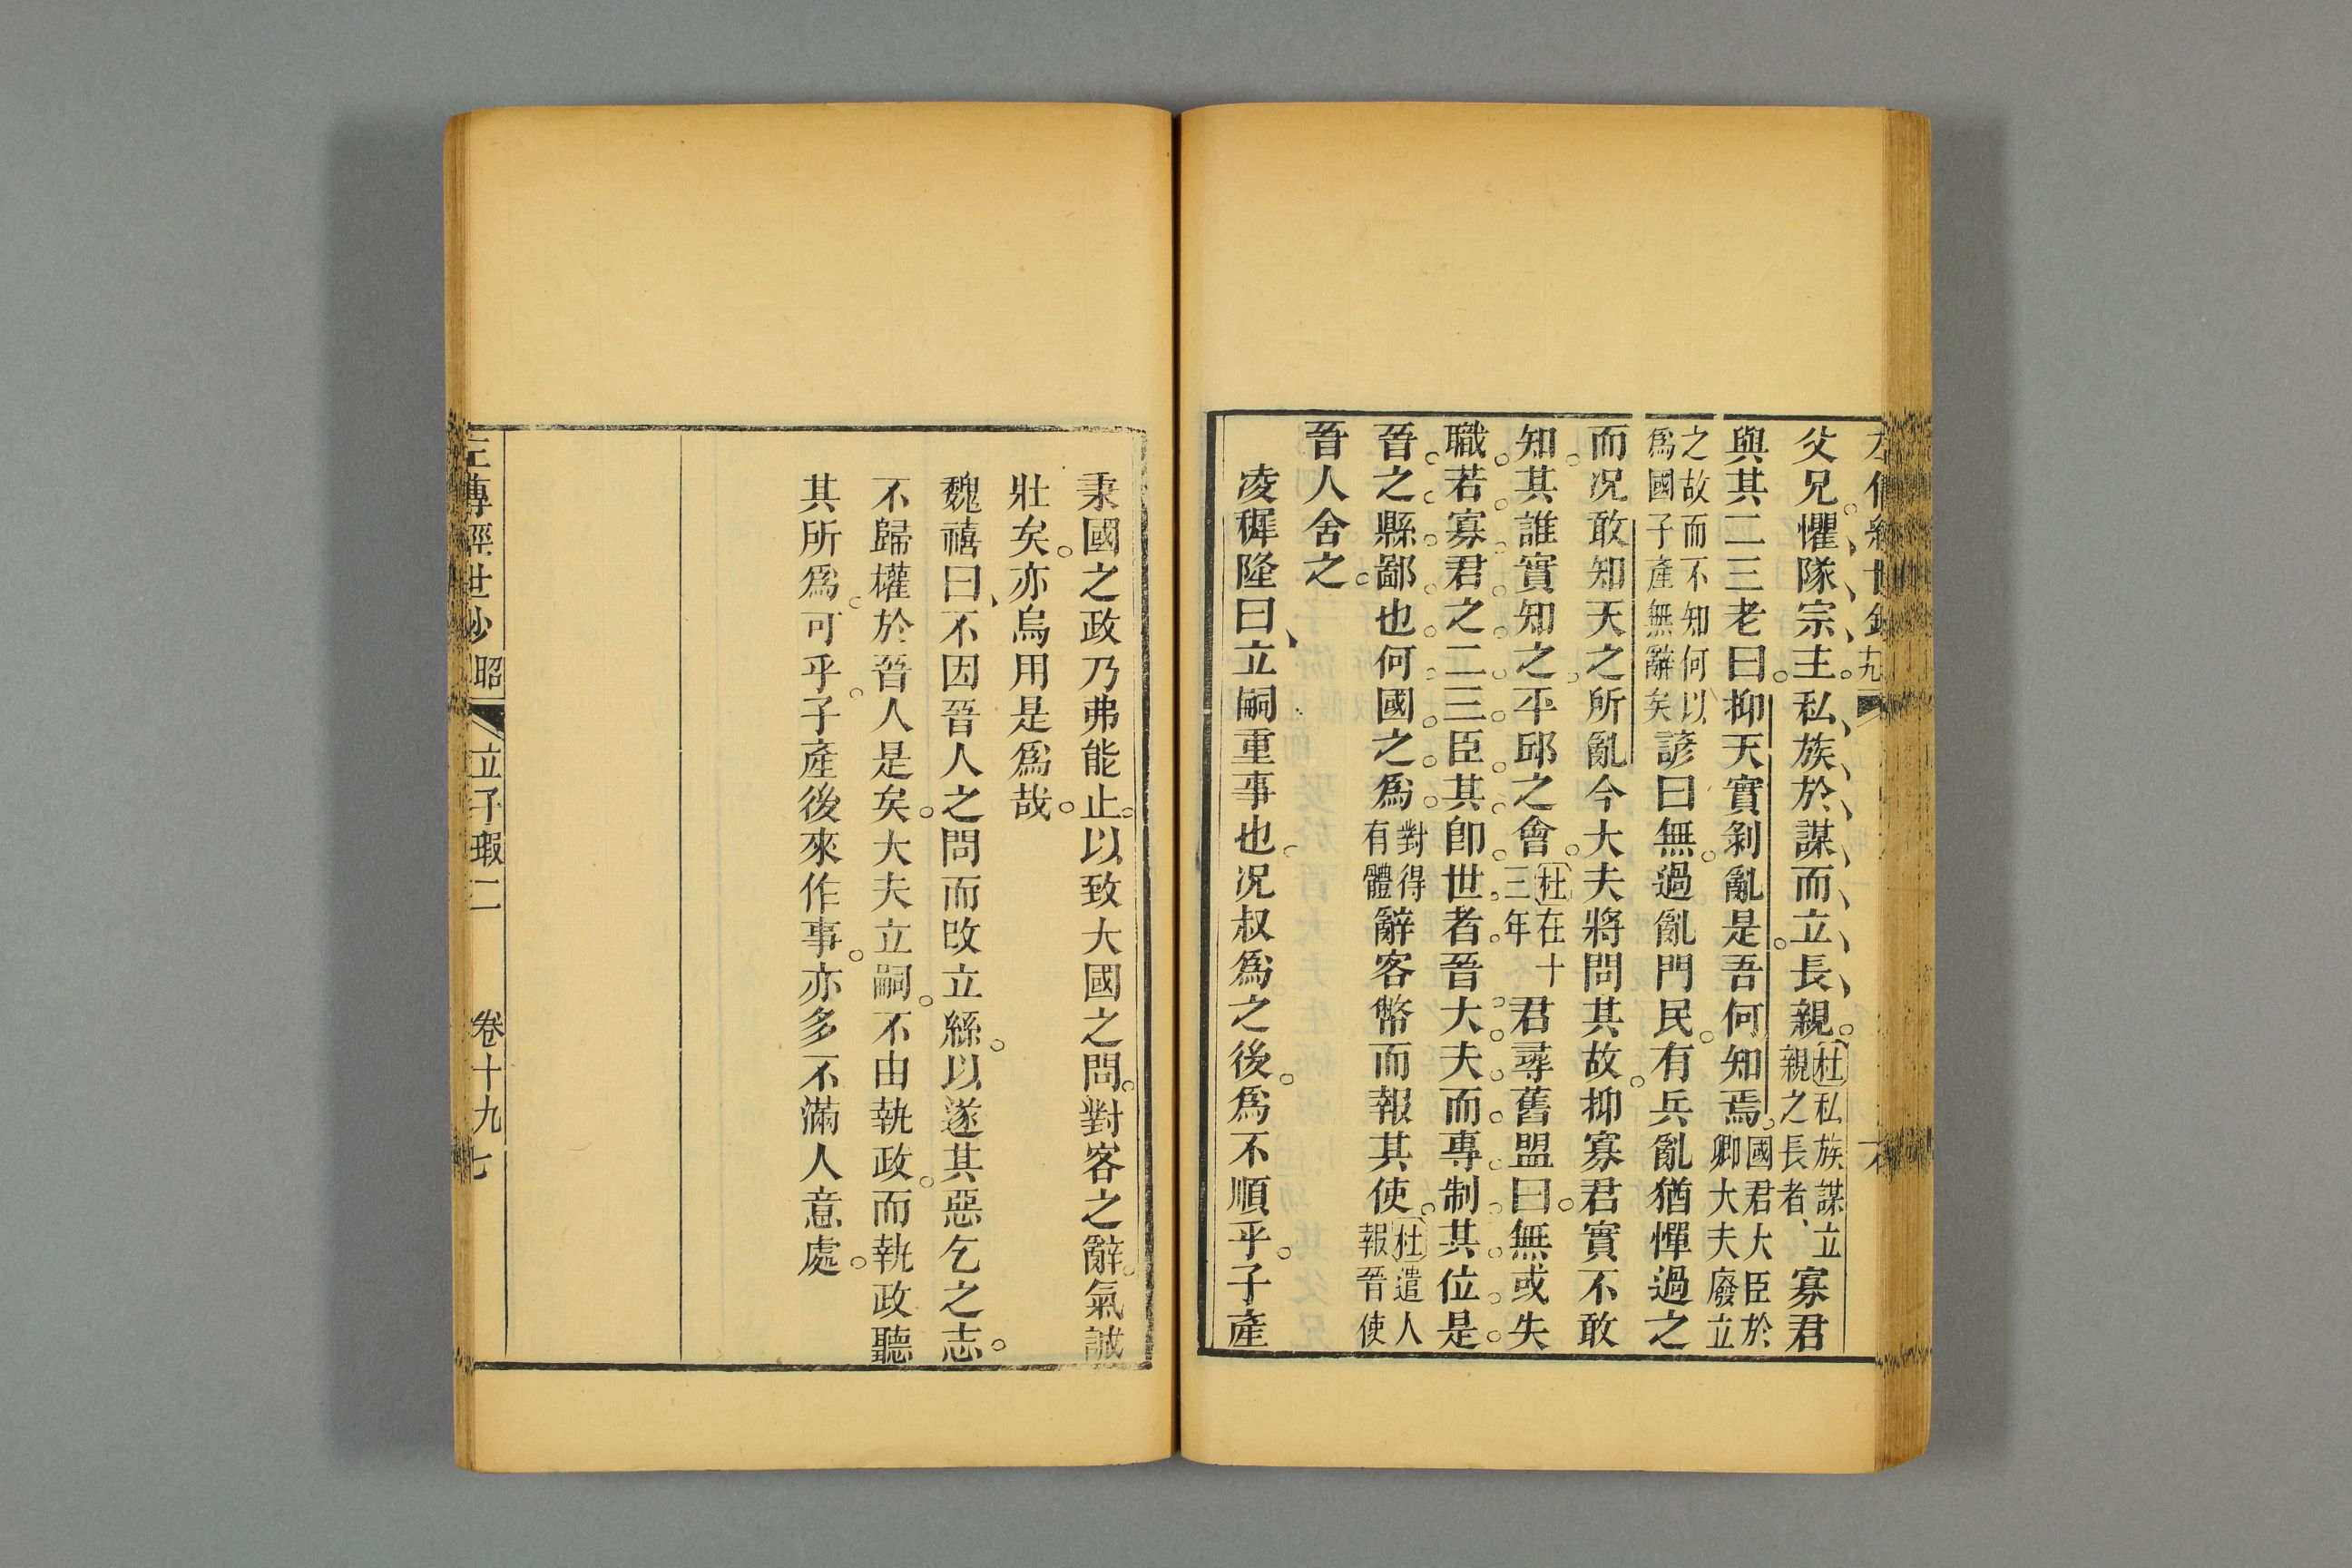 父兄懼隊宗主私族於謀而立長親杜私族謀立親之長者寡君
與其二三老曰抑天實剝亂是吾何知焉國君大臣於卿大夫廢立
之故而不知何以為國子產無辭矣諺曰無過亂門民有兵亂猶憚過之
而況敢知天之所亂今大夫將問其故抑寡君實不敢
知其誰實知之平邱之會杜在十三年君尋舊盟曰無或失
職若寡君之二三臣其卽世者晉大夫而專制其位是
晉之縣鄙也何國之為對得有體辭客幣而報其使杜遣人報晉使
晉人舍之
凌稺隆曰立嗣重事也況叔為之後為不順乎子產
秉國之政乃弗能止以致大國之問對客之辭氣誠
壯矣亦烏用是為哉
魏禧曰不因晉人之問而改立絲以遂其惡乞之志
不歸權於晉人是矣大夫立嗣不由執政而執政聽
其所為可乎子產後來作事亦多不滿人意處
左傳經世鈔 昭 立子瑕二 卷十九 七